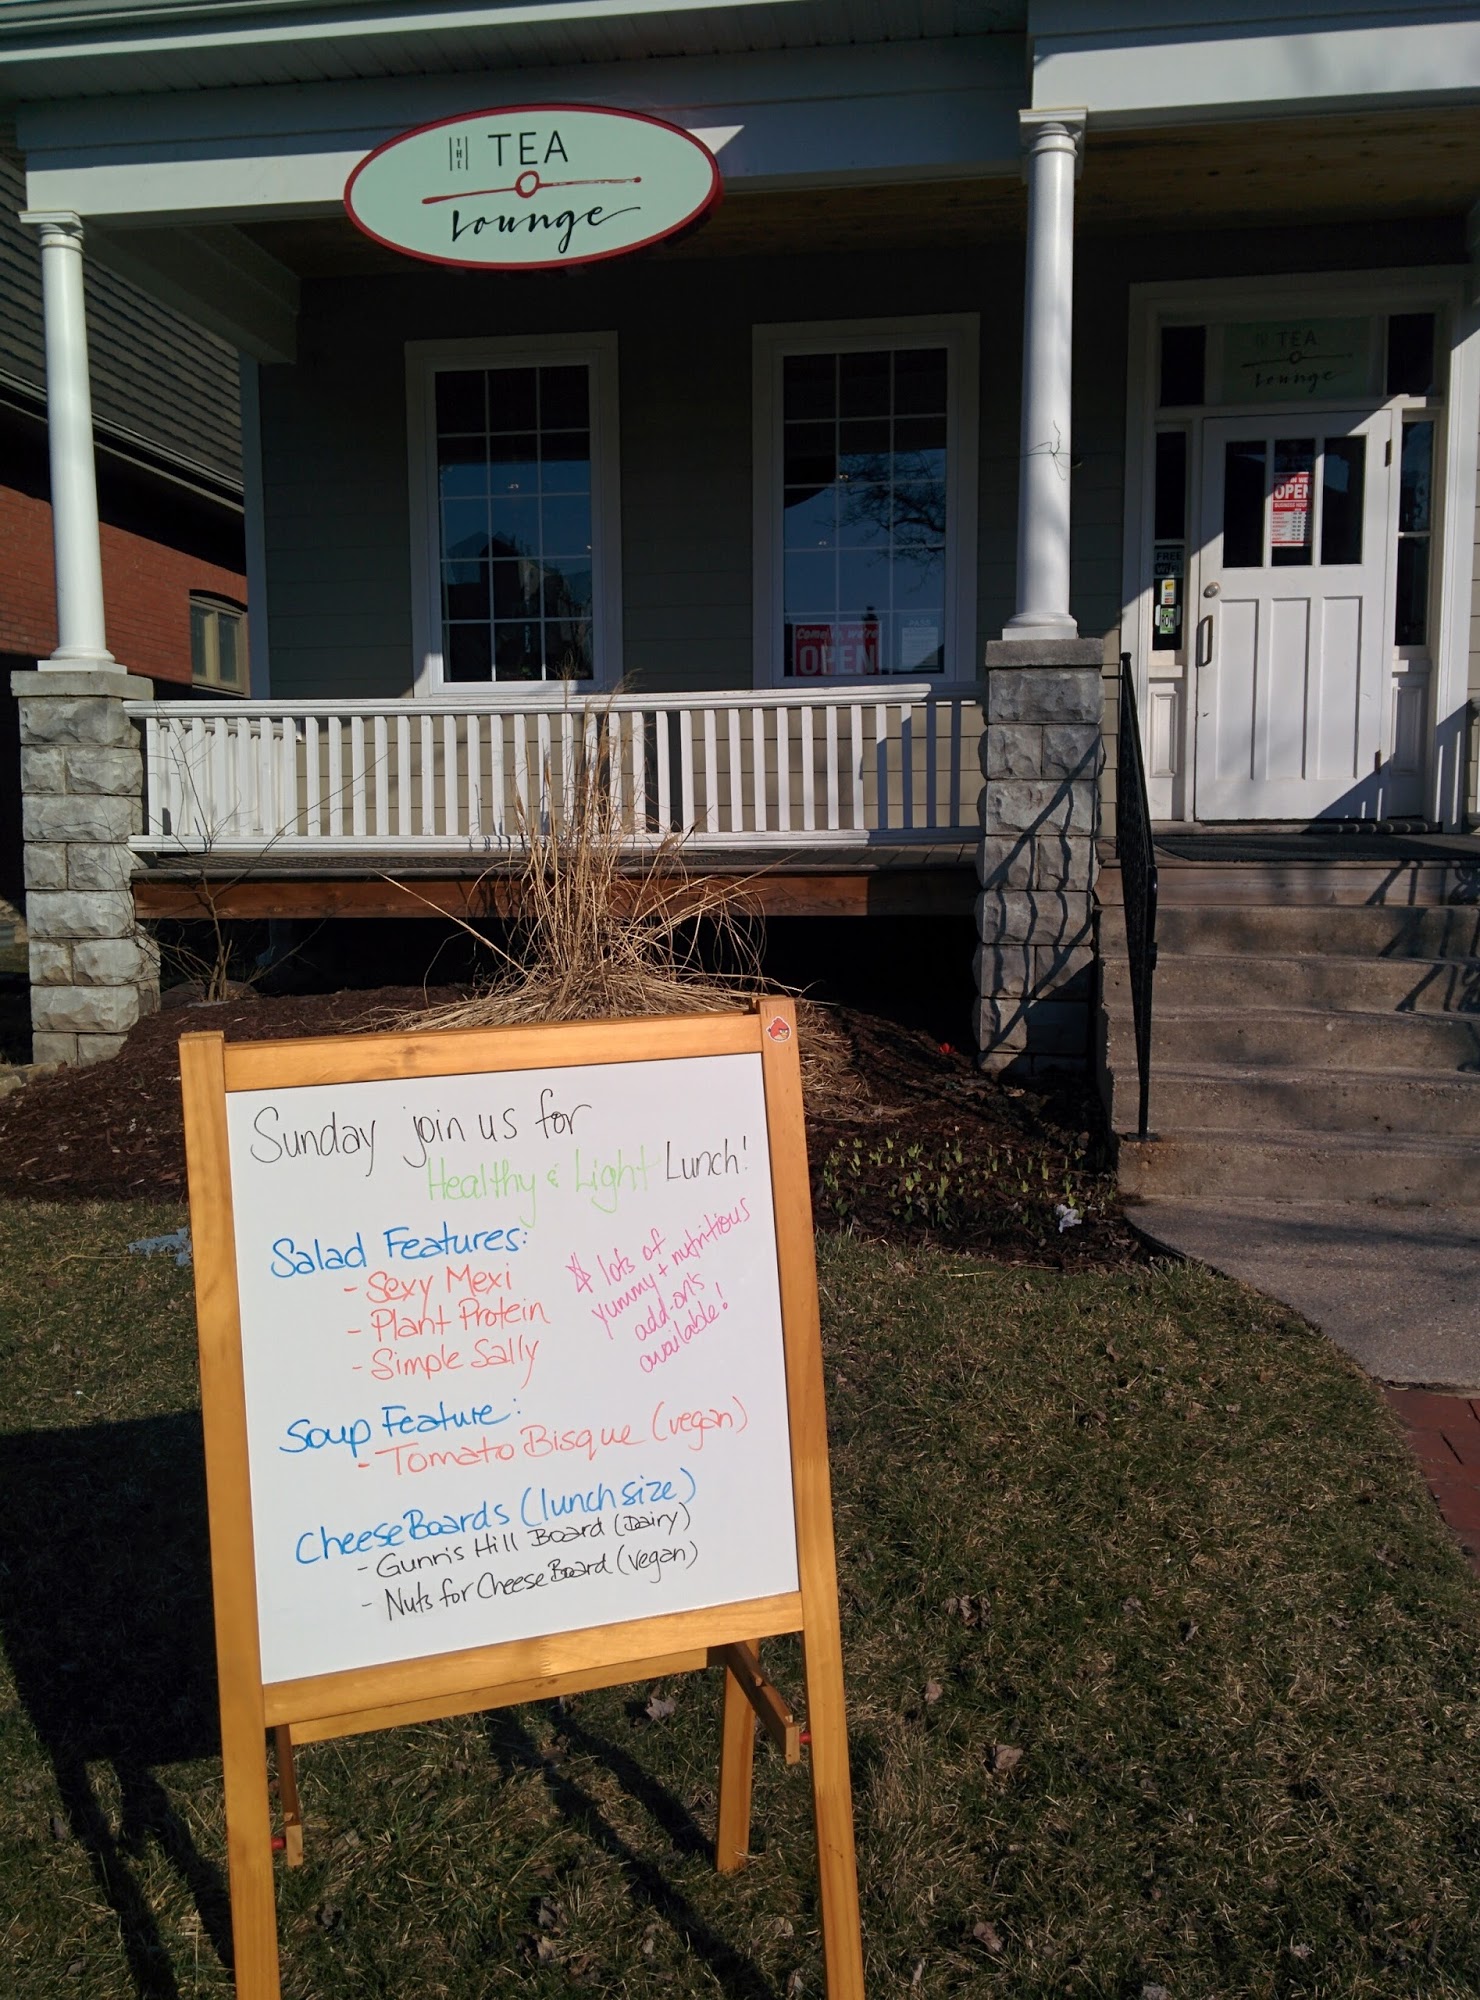 THE TEA
Lounge
THE TEA
Lounge
OPEN
BUSINESS HOURS
FREE
WiFi
Come in, we're
OPEN
Sunday join us for
Healthy & Light Lunch!
Salad Features:
- Sexy Mexi
- Plant Protein
- Simple Sally
lots of
yummy + nutritious
add-on's
available!
Soup Feature:
- Tomato Bisque (vegan)
Cheese Boards (lunch size)
- Gunn's Hill Board (Dairy)
- Nuts for Cheese Board (vegan)